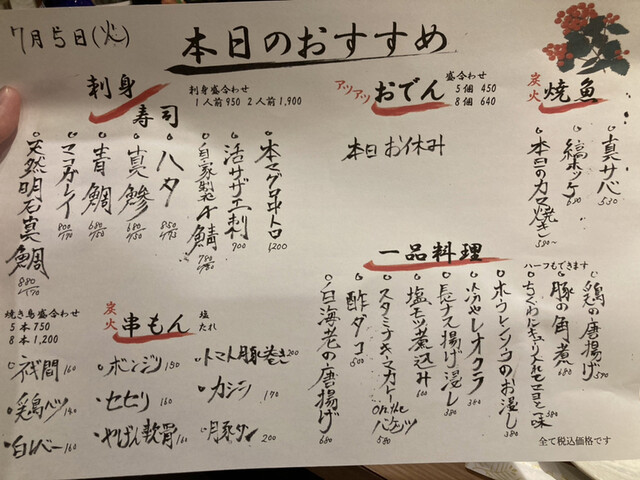 7月5日(火)
本日のおすすめ
刺身
寿司
刺身盛合わせ
1人前950 2人前1,900
本マグロ中トロ
1200
活サザエお刺
700
自家製〆鯖
780/
ハタ
850/
真鯵
680/150
青鯛
680/150
マコガレイ
800/170
天然明石真鯛
880/170
アツアツ
おでん
盛合わせ
5個 450
8個 640
本日お休み
炭火
焼魚
真サバ
530
縞ホッケ
680
本日のカマ焼き
580~
一品料理
ハーフもできます
鶏の唐揚げ
570
豚の角煮
680
ちくわにキューリ入れてマヨと一味
380
ホウレンソウのお浸し
380
冷やしオクラ
380
長ナス揚げ浸し
380
塩モツ煮込み
600
スタミナキーマカレー
on the バケッツ
580
酢ダコ
500
白海老の唐揚げ
680
全て税込価格です
焼き鳥盛合わせ
5本 750
8本 1,200
炭火
串もん
塩
たれ
ボンジリ 150
トマト豚巻き 200
セセリ 160
カシラ 170
やげん軟骨 160
豚タン 200
砂肝 160
鶏ハツ 140
白レバー 160